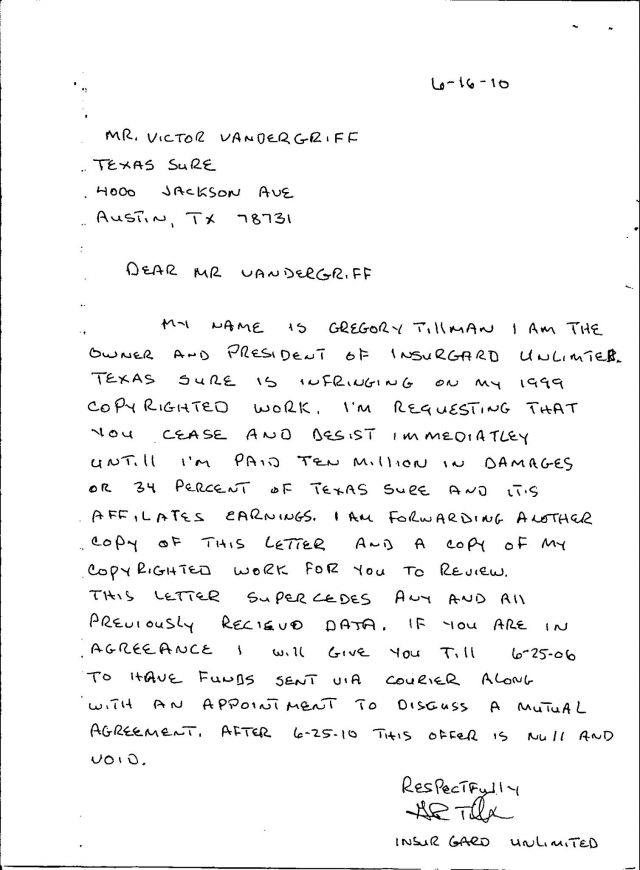 6-16-10
MR. VICTOR VANDERGRIFF
TEXAS SURE
4000 JACKSON AVE
AUSTIN, TX 78731
DEAR MR VANDERGRIFF
MY NAME IS GREGORY TILLMAN I AM THE
OWNER AND PRESIDENT OF INSURGARD UNLIMTED.
TEXAS SURE IS INFRINGING ON MY 1999
COPYRIGHTED WORK. I'M REQUESTING THAT
YOU CEASE AND DESIST IMMEDIATLEY
UNTILL I'M PAID TEN MILLION IN DAMAGES
OR 34 PERCENT OF TEXAS SURE AND IT'S
AFFILATES EARNINGS. I AM FORWARDING ANOTHER
COPY OF THIS LETTER AND A COPY OF MY
COPYRIGHTED WORK FOR YOU TO REVIEW.
THIS LETTER SUPERCEDES ANY AND ALL
PREVIOUSLY RECIEVD DATA. IF YOU ARE IN
AGREEANCE I WILL GIVE YOU TILL 6-25-06
TO HAVE FUNDS SENT VIA COURIER ALONG
WITH AN APPOINTMENT TO DISCUSS A MUTUAL
AGREEMENT. AFTER 6-25-10 THIS OFFER IS NULL AND
VOID.
RESPECTFULLY
INSURGARD UNLIMITED